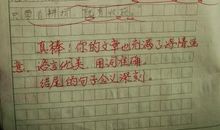 真棒！你的文章也充满了诗情画
意，语言优美，用词准确，
结尾的句子含义深刻。